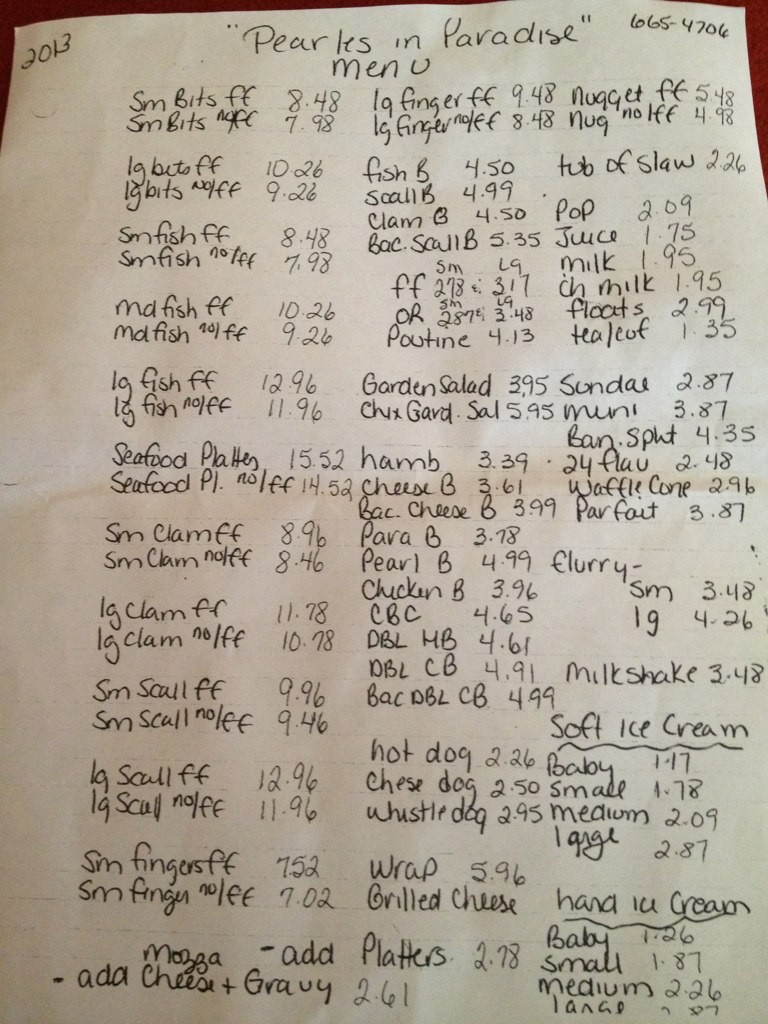 2013
"Pearles in Paradise"
menu
665-4706
Sm Bits ff 8.48
Sm Bits no/ff 7.98
lg bits ff 10.26
lg bits no/ff 9.26
Sm fish ff 8.48
Sm fish no/ff 7.98
md fish ff 10.26
md fish no/ff 9.26
lg fish ff 12.96
lg fish no/ff 11.96
Seafood Platter 15.52
Seafood Pl. no/ff 14.52
Sm Clam ff 8.96
Sm Clam no/ff 8.46
lg Clam ff 11.78
lg clam no/ff 10.78
Sm Scall ff 9.96
Sm Scall no/ff 9.46
lg Scall ff 12.96
lg Scall no/ff 11.96
Sm fingers ff 7.52
Sm finger no/ff 7.02
lg finger ff 9.48
lg finger no/ff 8.48
fish B 4.50
Scall B 4.99
Clam B 4.50
Bac. Scall B 5.35
Sm Lg
ff 2.78 & 3.17
Sm Lg
OR 2.87 & 3.48
Poutine 4.13
Garden Salad 3.95
Chix Gard. Sal 5.95
hamb 3.39
Cheese B 3.61
Bac. Cheese B 3.99
Para B 3.78
Pearl B 4.99
Chicken B 3.96
CBC 4.65
DBL HB 4.61
DBL CB 4.91
Bac DBL CB 4.99
hot dog 2.26
Chese dog 2.50
Whistle dog 2.95
Wrap 5.96
Grilled Cheese
Nugget ff 5.48
Nug no/ff 4.98
tub of Slaw 2.26
Pop 2.09
Juice 1.75
milk 1.95
ch milk 1.95
floats 2.99
tea/cof 1.35
Sundae 2.87
Muni 3.87
Ban. Split 4.35
24 flav 2.48
Waffle Cone 2.96
Parfait 3.87
flurry-
Sm 3.48
lg 4.26
Milkshake 3.48
Soft Ice Cream
Baby 1.17
Small 1.78
medium 2.09
large 2.87
hard ice Cream
Baby 1.26
Small 1.87
medium 2.26
large
mozza - add Platters 2.78
- add Cheese + Gravy 2.61